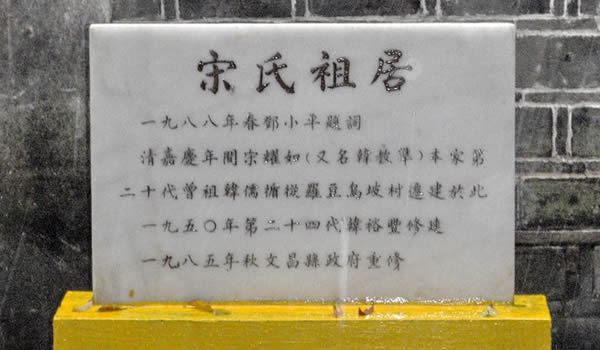 宋氏祖居
一九八八年春鄧小平題詞
清嘉慶年間宗耀如(又名韓教準)本家第
二十代曾祖韓儒循從羅豆烏坡村遷建於此
一九五〇年第二十四代韓裕豐修建
一九八五年秋文昌縣政府重修